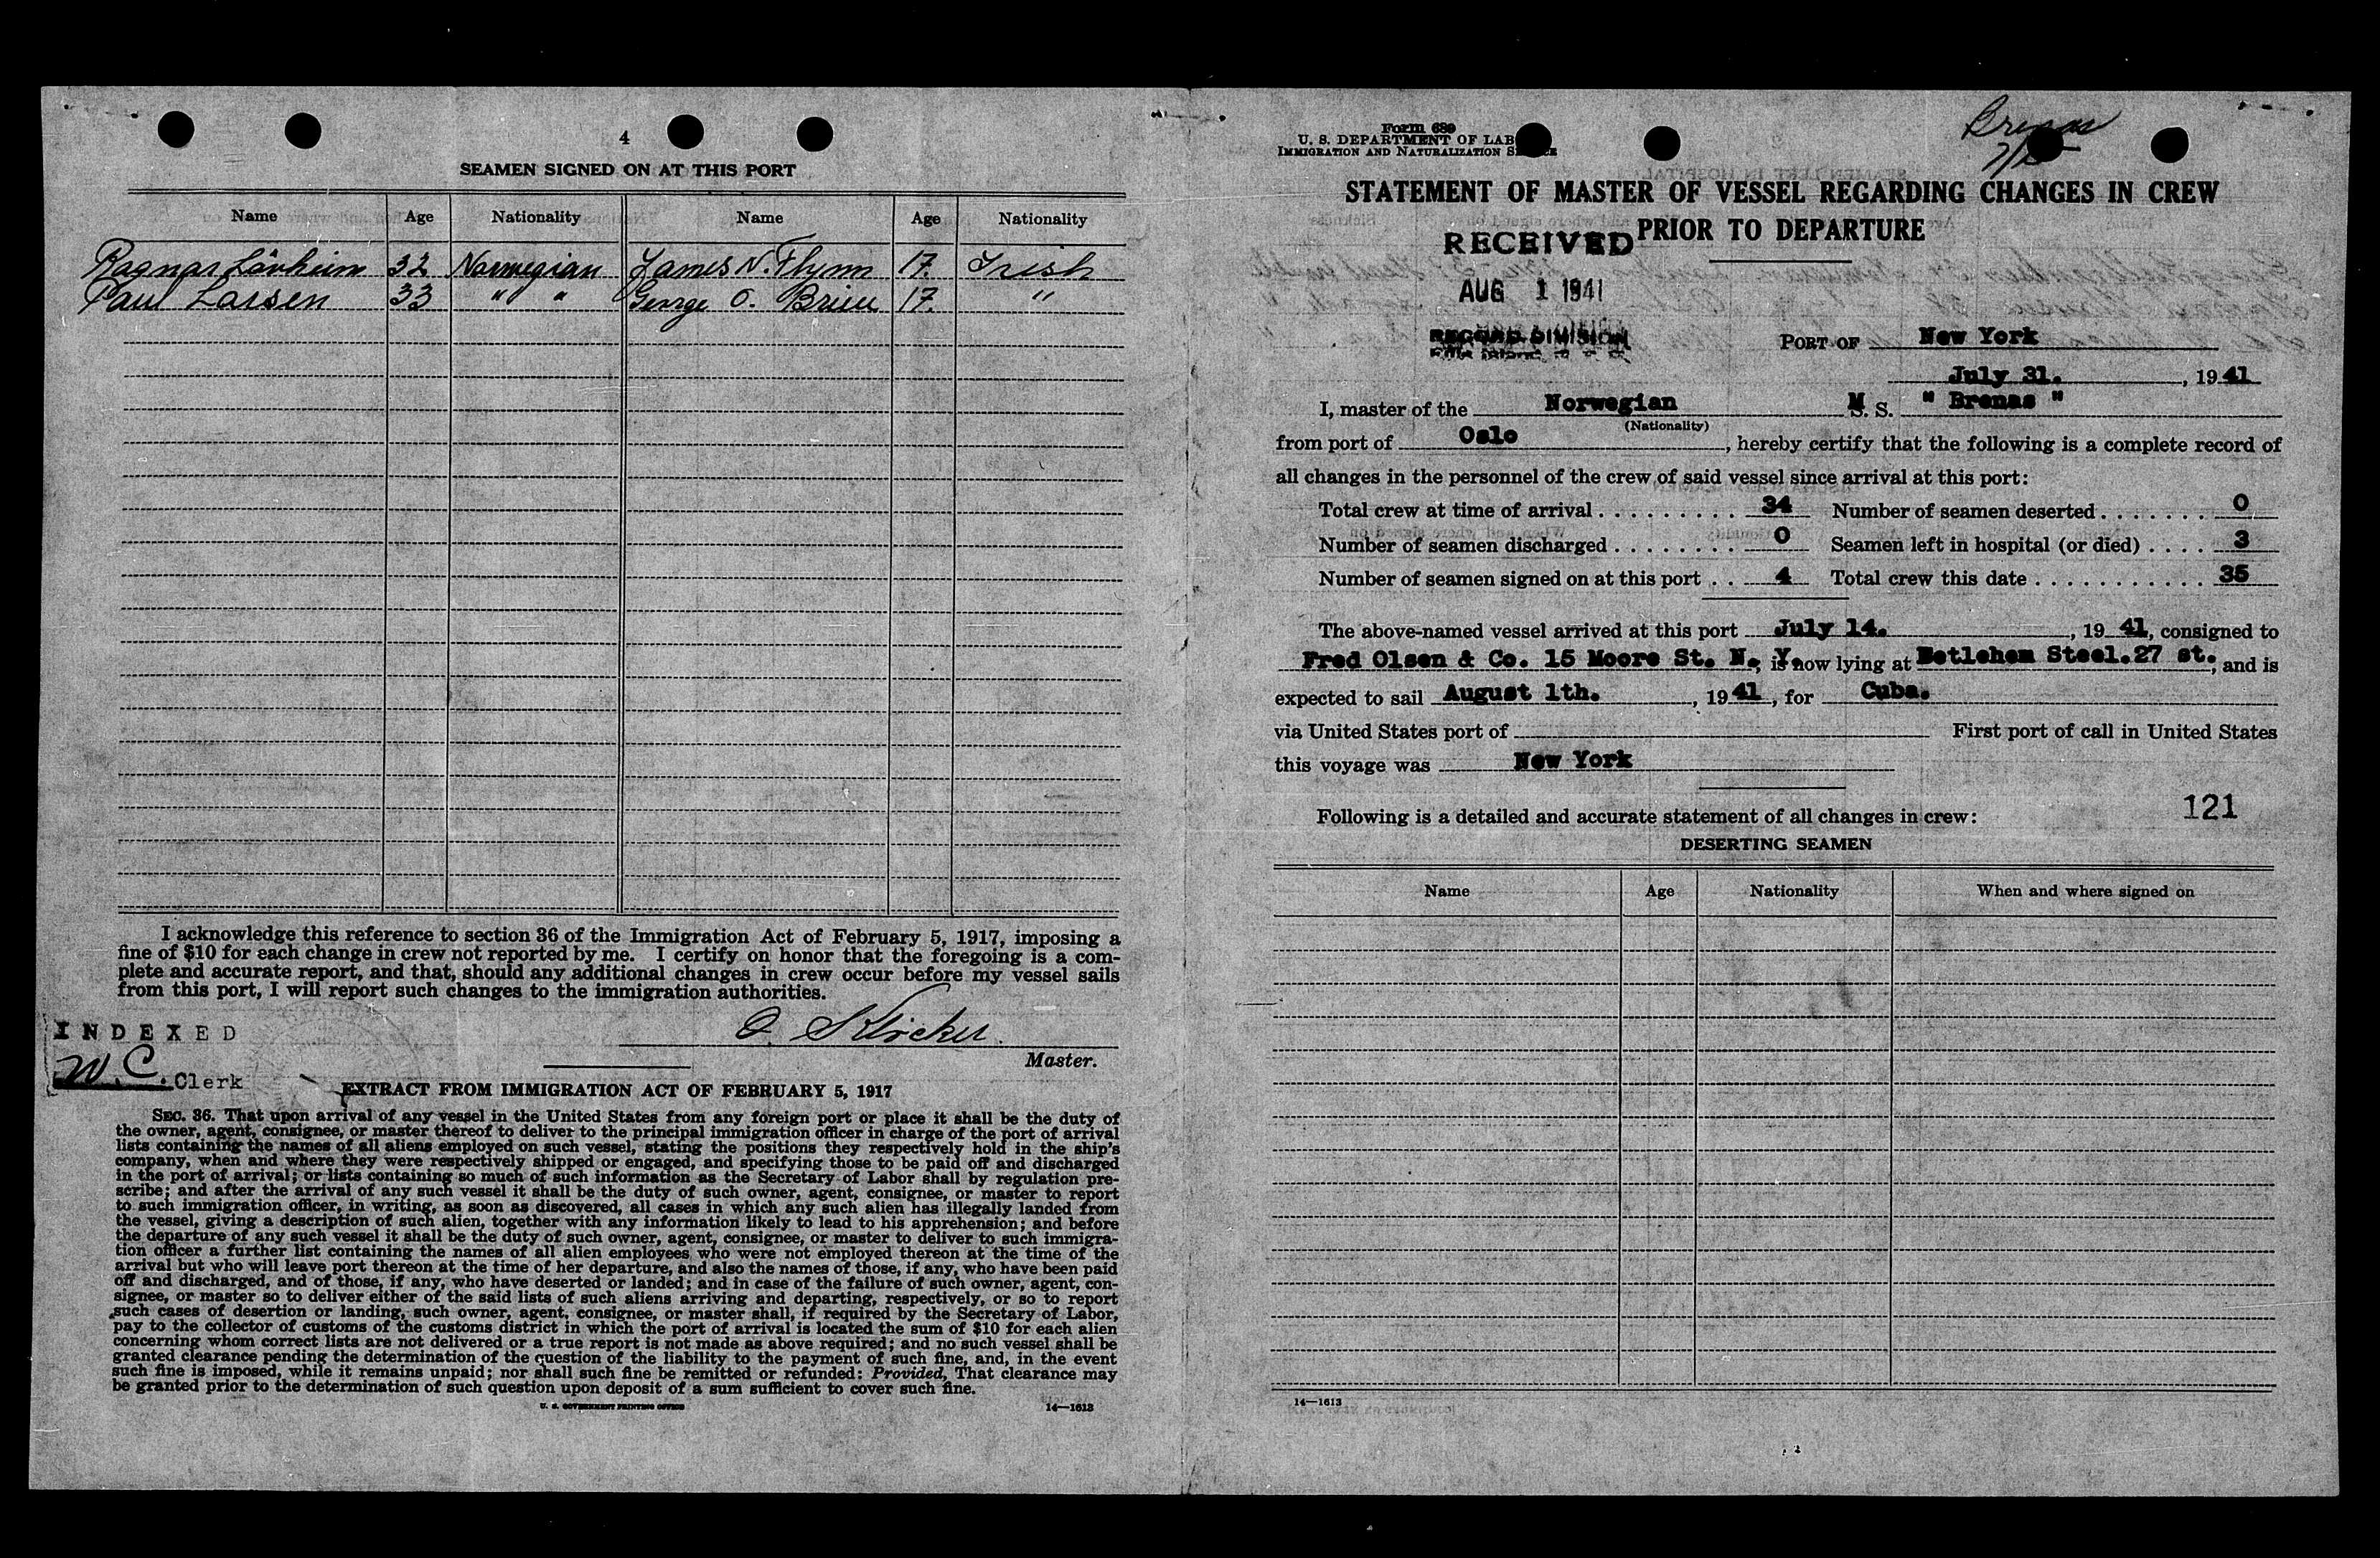 4
SEAMEN SIGNED ON AT THIS PORT
Name Age Nationality Name Age Nationality
Ragnar Lövheim 32 Norwegian James N. Flynn 17. Irish
Paul Larsen 33 " " George O. Brien 17. "
I acknowledge this reference to section 36 of the Immigration Act of February 5, 1917, imposing a
fine of $10 for each change in crew not reported by me. I certify on honor that the foregoing is a com-
plete and accurate report, and that, should any additional changes in crew occur before my vessel sails
from this port, I will report such changes to the immigration authorities.
O.
Master.
INDEXED
W. C. Clerk
EXTRACT FROM IMMIGRATION ACT OF FEBRUARY 5, 1917
SEC. 36. That upon arrival of any vessel in the United States from any foreign port or place it shall be the duty of
the owner, agent, consignee, or master thereof to deliver to the principal immigration officer in charge of the port of arrival
lists containing the names of all aliens employed on such vessel, stating the positions they respectively hold in the ship's
company, when and where they were respectively shipped or engaged, and specifying those to be paid off and discharged
in the port of arrival; or lists containing so much of such information as the Secretary of Labor shall by regulation pre-
scribe; and after the arrival of any such vessel it shall be the duty of such owner, agent, consignee, or master to report
to such immigration officer, in writing, as soon as discovered, all cases in which any such alien has illegally landed from
the vessel, giving a description of such alien, together with any information likely to lead to his apprehension; and before
the departure of any such vessel it shall be the duty of such owner, agent, consignee, or master to deliver to such immigra-
tion officer a further list containing the names of all alien employees who were not employed thereon at the time of the
arrival but who will leave port thereon at the time of her departure, and also the names of those, if any, who have been paid
off and discharged, and of those, if any, who have deserted or landed; and in case of the failure of such owner, agent, con-
signee, or master so to deliver either of the said lists of such aliens arriving and departing, respectively, or so to report
such cases of desertion or landing, such owner, agent, consignee, or master shall, if required by the Secretary of Labor,
pay to the collector of customs of the customs district in which the port of arrival is located the sum of $10 for each alien
concerning whom correct lists are not delivered or a true report is not made as above required; and no such vessel shall be
granted clearance pending the determination of the question of the liability to the payment of such fine, and, in the event
such fine is imposed, while it remains unpaid; nor shall such fine be remitted or refunded: Provided, That clearance may
be granted prior to the determination of such question upon deposit of a sum sufficient to cover such fine.
U. S. GOVERNMENT PRINTING OFFICE 14—1613
Form 689
U. S. DEPARTMENT OF LAB
IMMIGRATION AND NATURALIZATION S
Brenas
STATEMENT OF MASTER OF VESSEL REGARDING CHANGES IN CREW
PRIOR TO DEPARTURE
RECEIVED
AUG 1 1941
RECORD DIVISION
PORT OF New York
July 31. , 1941
I, master of the Norwegian M S. S. " Brenas "
(Nationality)
from port of Oslo , hereby certify that the following is a complete record of
all changes in the personnel of the crew of said vessel since arrival at this port:
Total crew at time of arrival . . . . . . . . . 34 Number of seamen deserted . . . . . . . 0
Number of seamen discharged . . . . . . . . 0 Seamen left in hospital (or died) . . . . 3
Number of seamen signed on at this port . . 4 Total crew this date . . . . . . . . . . . 35
The above-named vessel arrived at this port July 14. , 19 41, consigned to
Fred Olsen & Co. 15 Moore St. N. Y. ; is now lying at Betlehem Steel.27 st. ; and is
expected to sail August 1th. , 19 41 , for Cuba.
via United States port of First port of call in United States
this voyage was New York
121
Following is a detailed and accurate statement of all changes in crew:
DESERTING SEAMEN
Name Age Nationality When and where signed on
14—1613